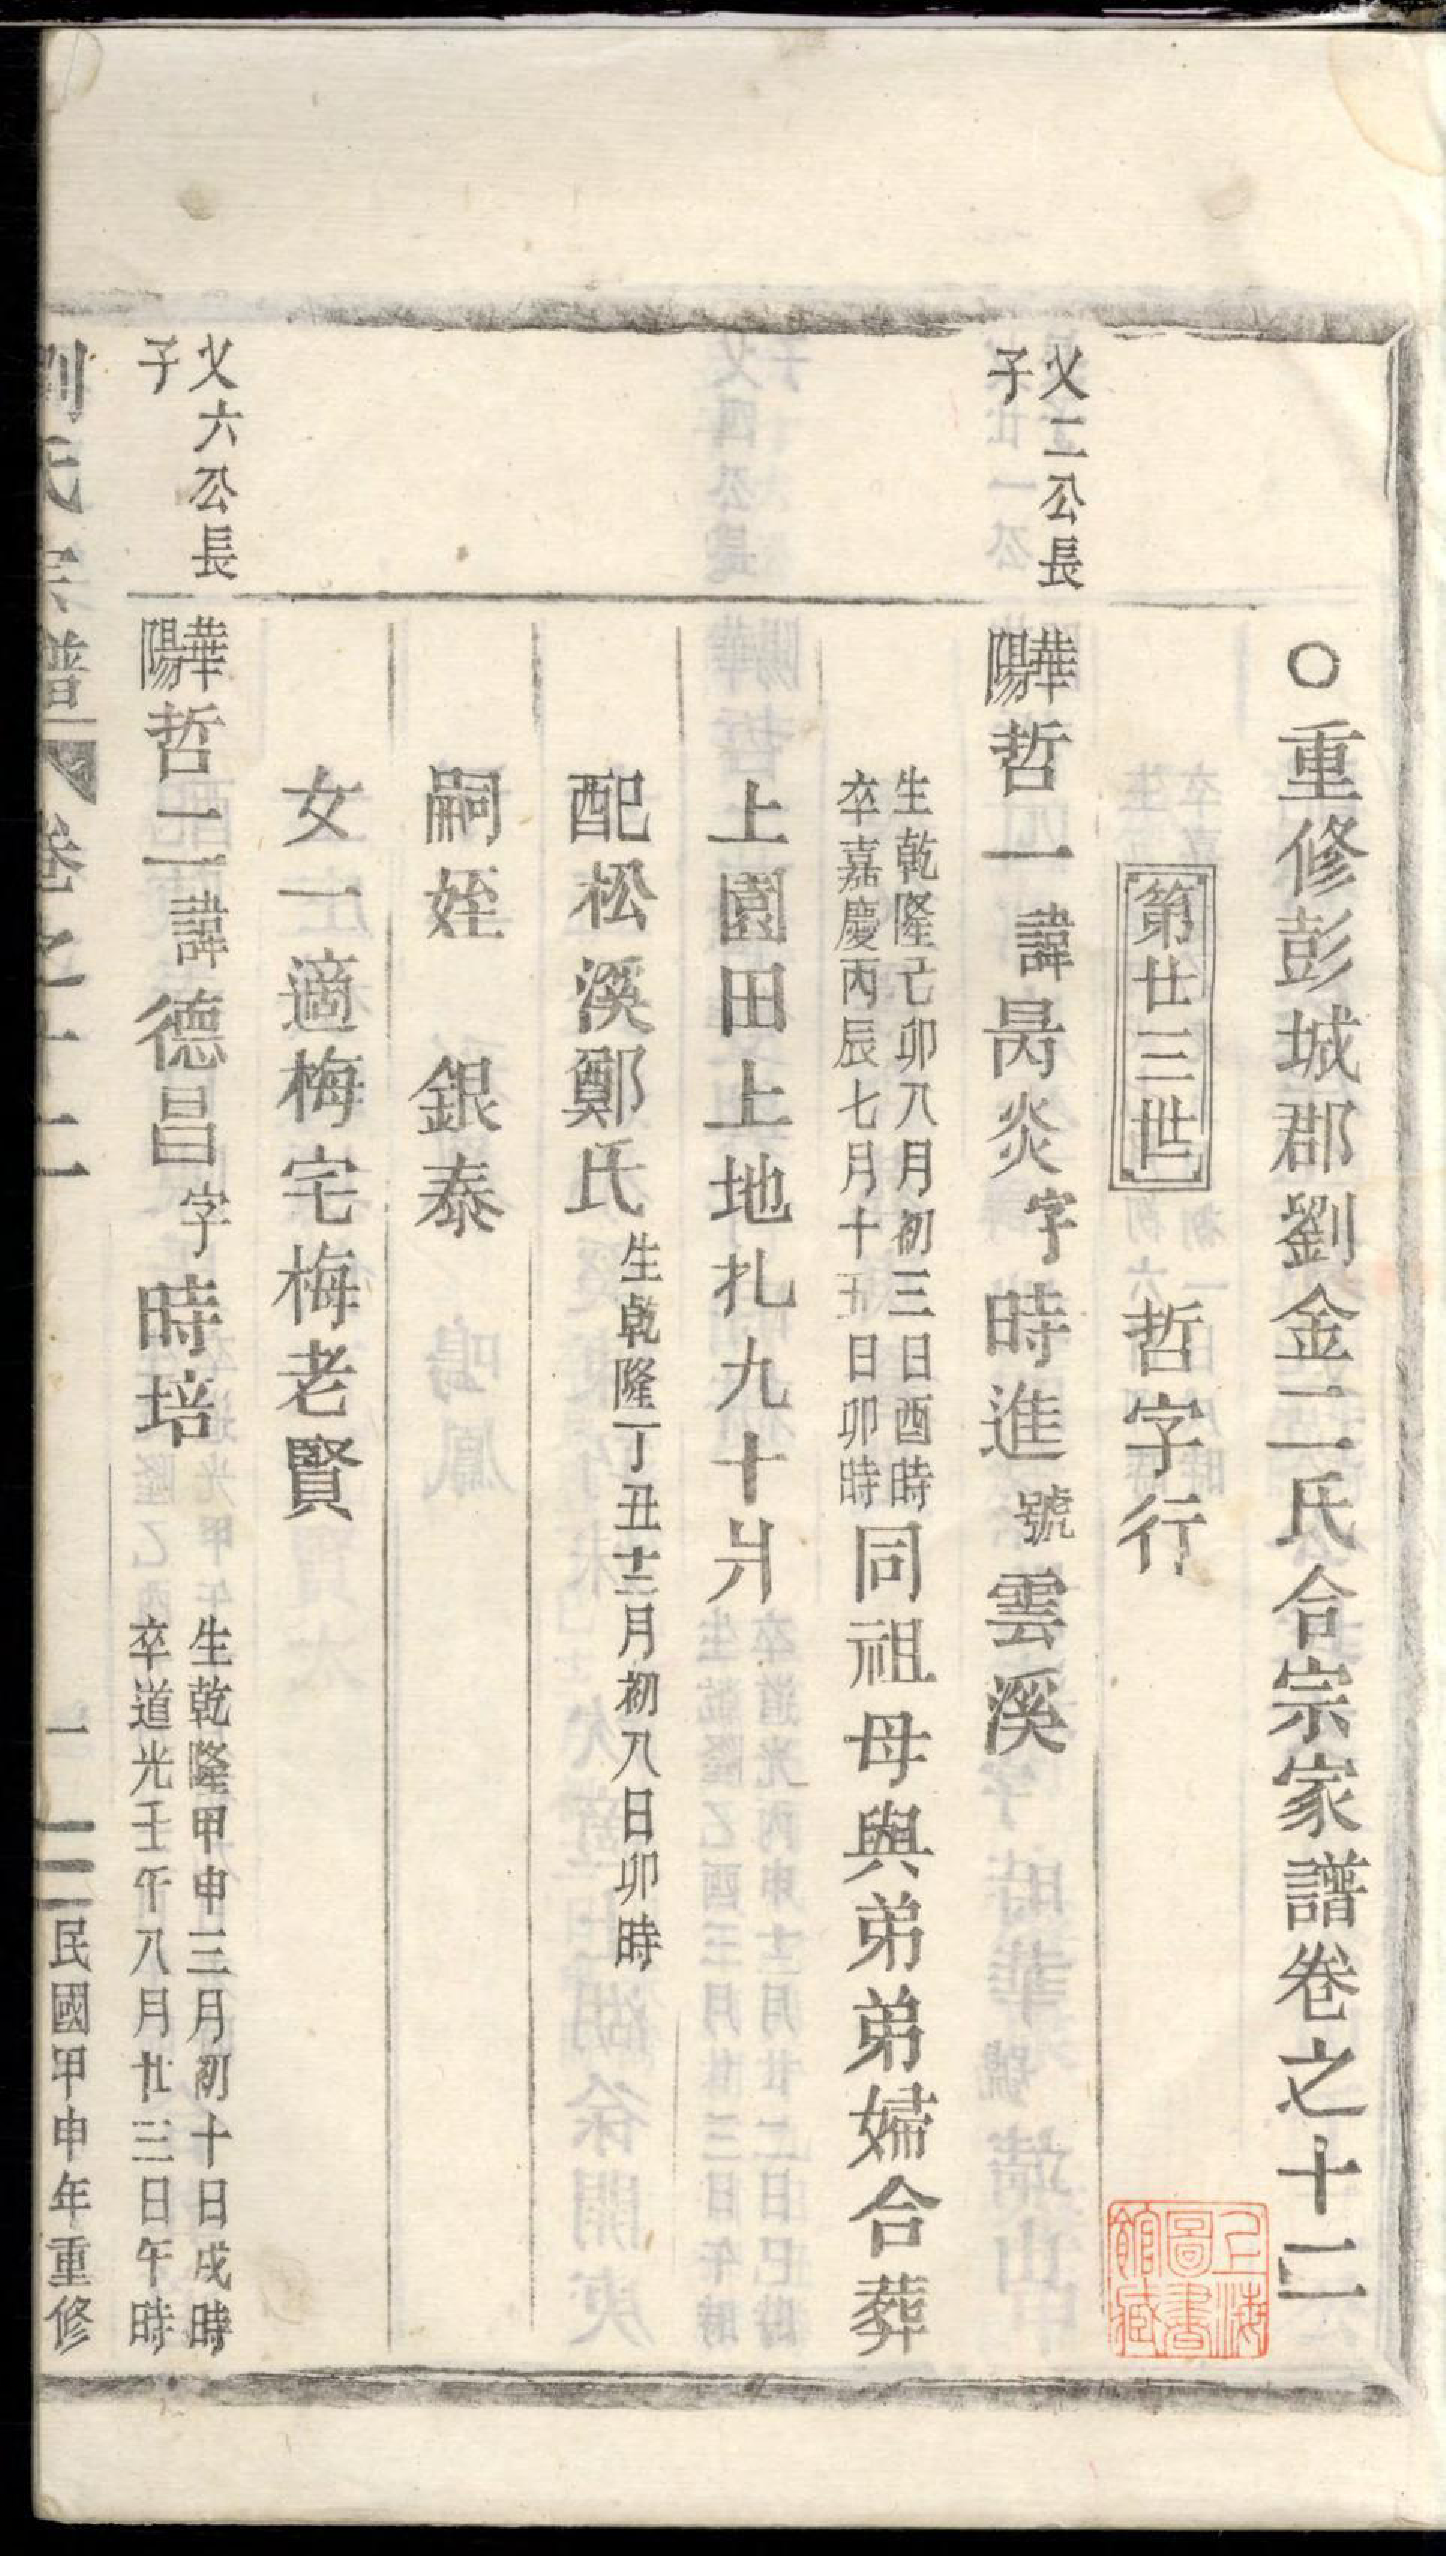 ○重修彭城郡劉金二氏合宗家譜卷之十二
第廿三世 哲字行
父二公長
子
華陽哲一諱昺炎字時進號雲溪
生乾隆己卯八月初三日酉時
卒嘉慶丙辰七月十五日卯時
同祖母與弟弟婦合葬
上園田上地扎九十爿
配松溪鄭氏生乾隆丁丑十二月初八日卯時
嗣姪 銀泰
女一適梅宅梅老賢
父六公長
子
華陽哲二諱德昌字時培
生乾隆甲申三月初十日戌時
卒道光壬午八月廿三日午時
劉氏宗譜 卷之十二 一 民國甲申年重修
上海圖書館藏